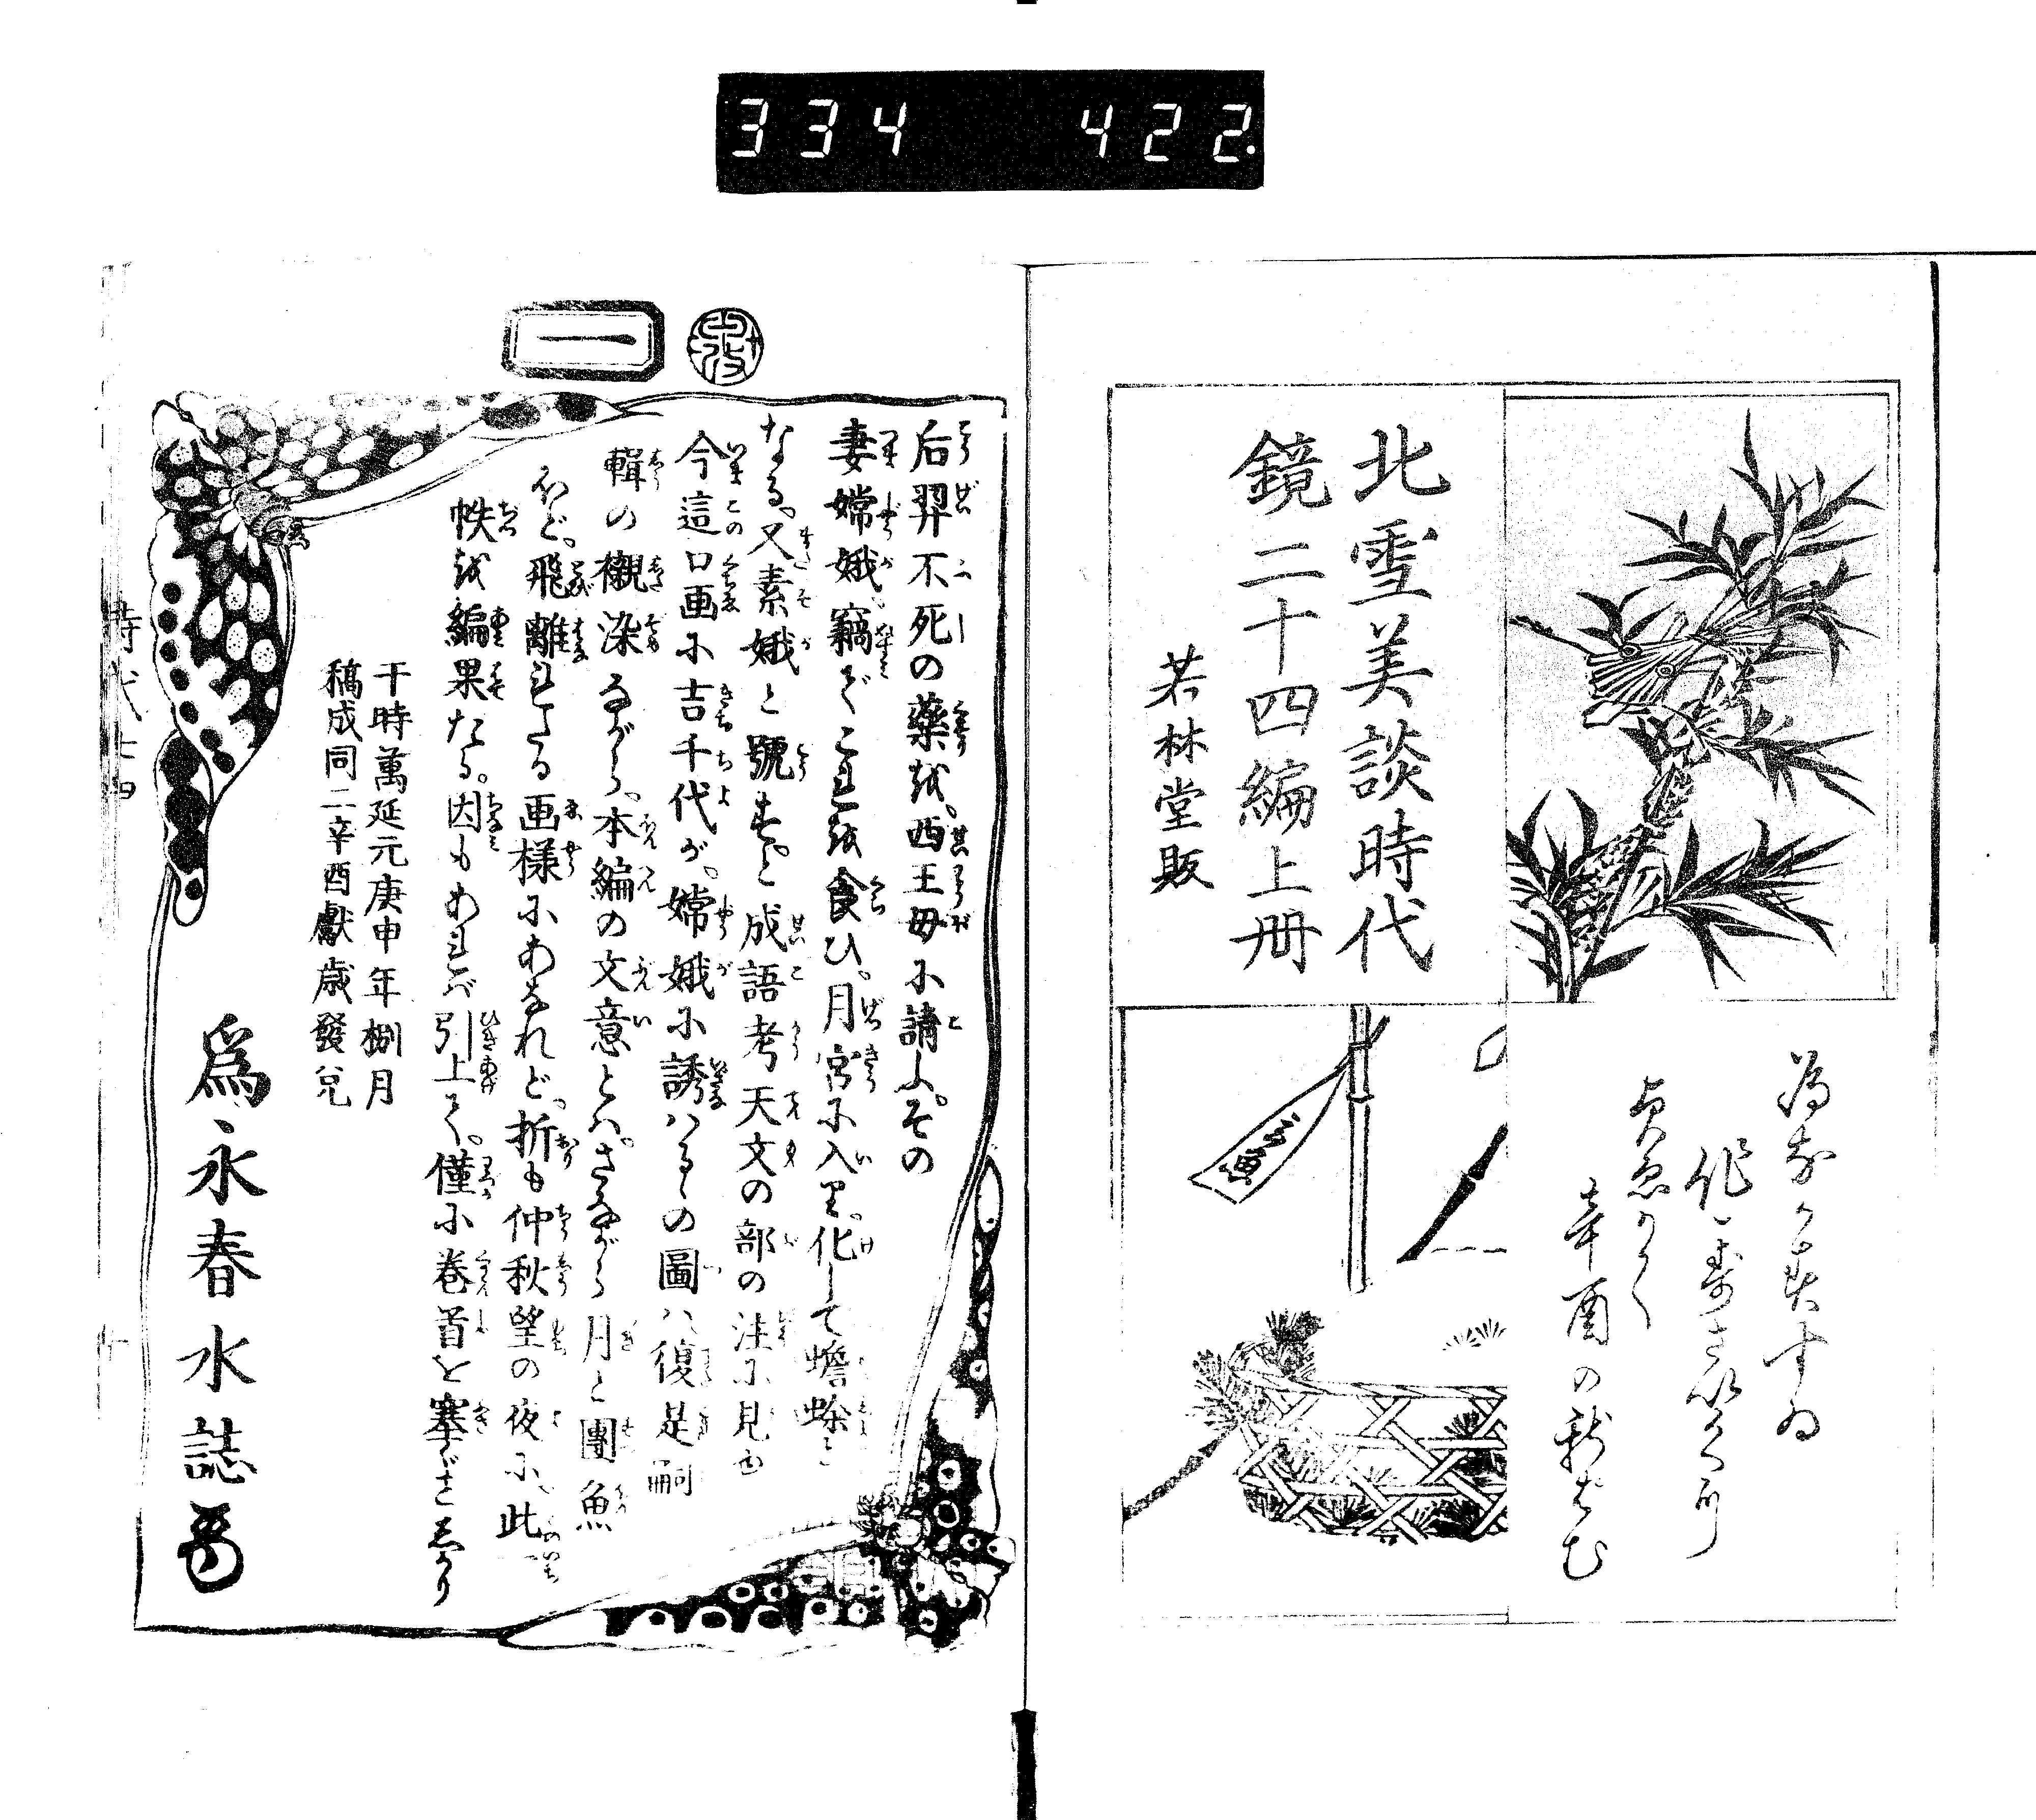 334 422.
北雪美談時代
鏡二十四編上冊
若林堂販
為永春水
作
貞秀ゑがく
辛酉の新はむ
一
后羿不死の藥を。西王母に請ふ。その
妻嫦娥。竊でこれを食ひ。月宮に入り。化して蟾蜍と
なる。又素娥と號す。と成語考天文の部の注に見ゆ
今這口画に吉千代が。嫦娥に誘はるゝの圖は復是嗣
輯の襯染ながら。本編の文意とは。さながら月と團魚
ほど。飛離れたる画様にあなれど。折も仲秋望の夜に。此
帙を編果たる。因もあれば引上て。僅に巻首を塞ぎぬ
干時萬延元庚申年捌月
稿成同二辛酉獻歳發兌
爲永春水誌